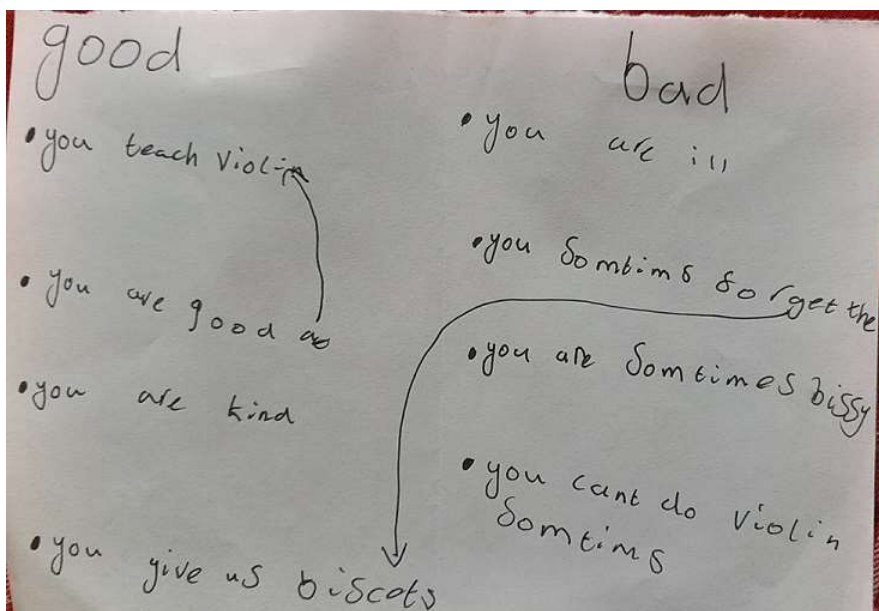 good
• you teach violin
• you are good at
• you are kind
• you give us biscots
bad
• you are ill
• you somtims forget the
• you are somtimes bissy
• you cant do violin
somtims